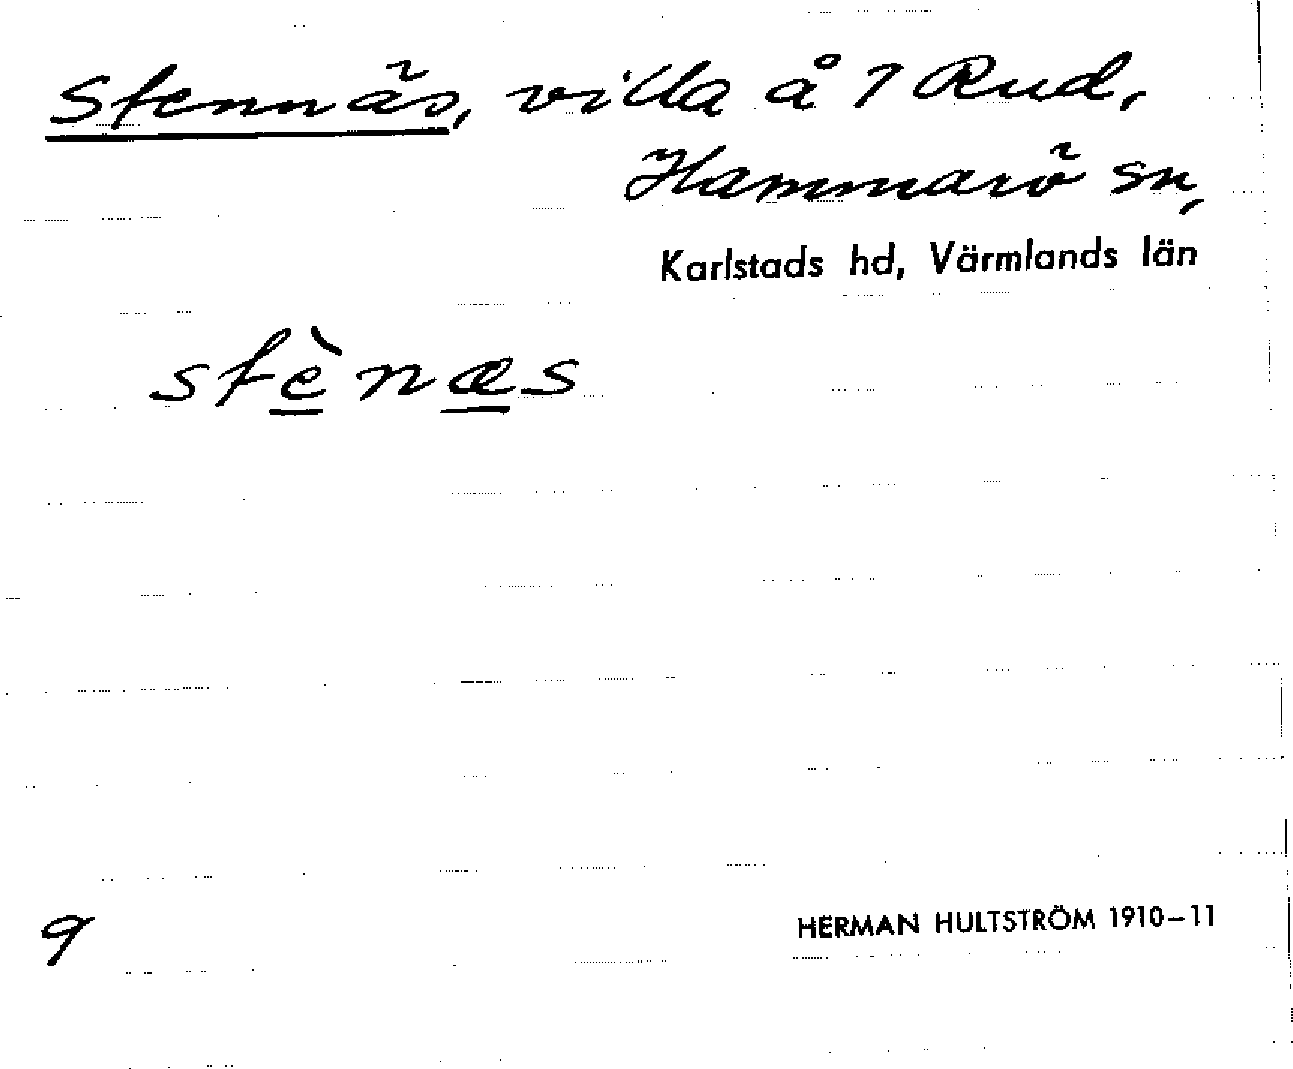 Stennäs, villa å 7 Rud,
Hammarö sn,
Karlstads hd, Värmlands län
stènæs
9
HERMAN HULTSTRÖM 1910–11